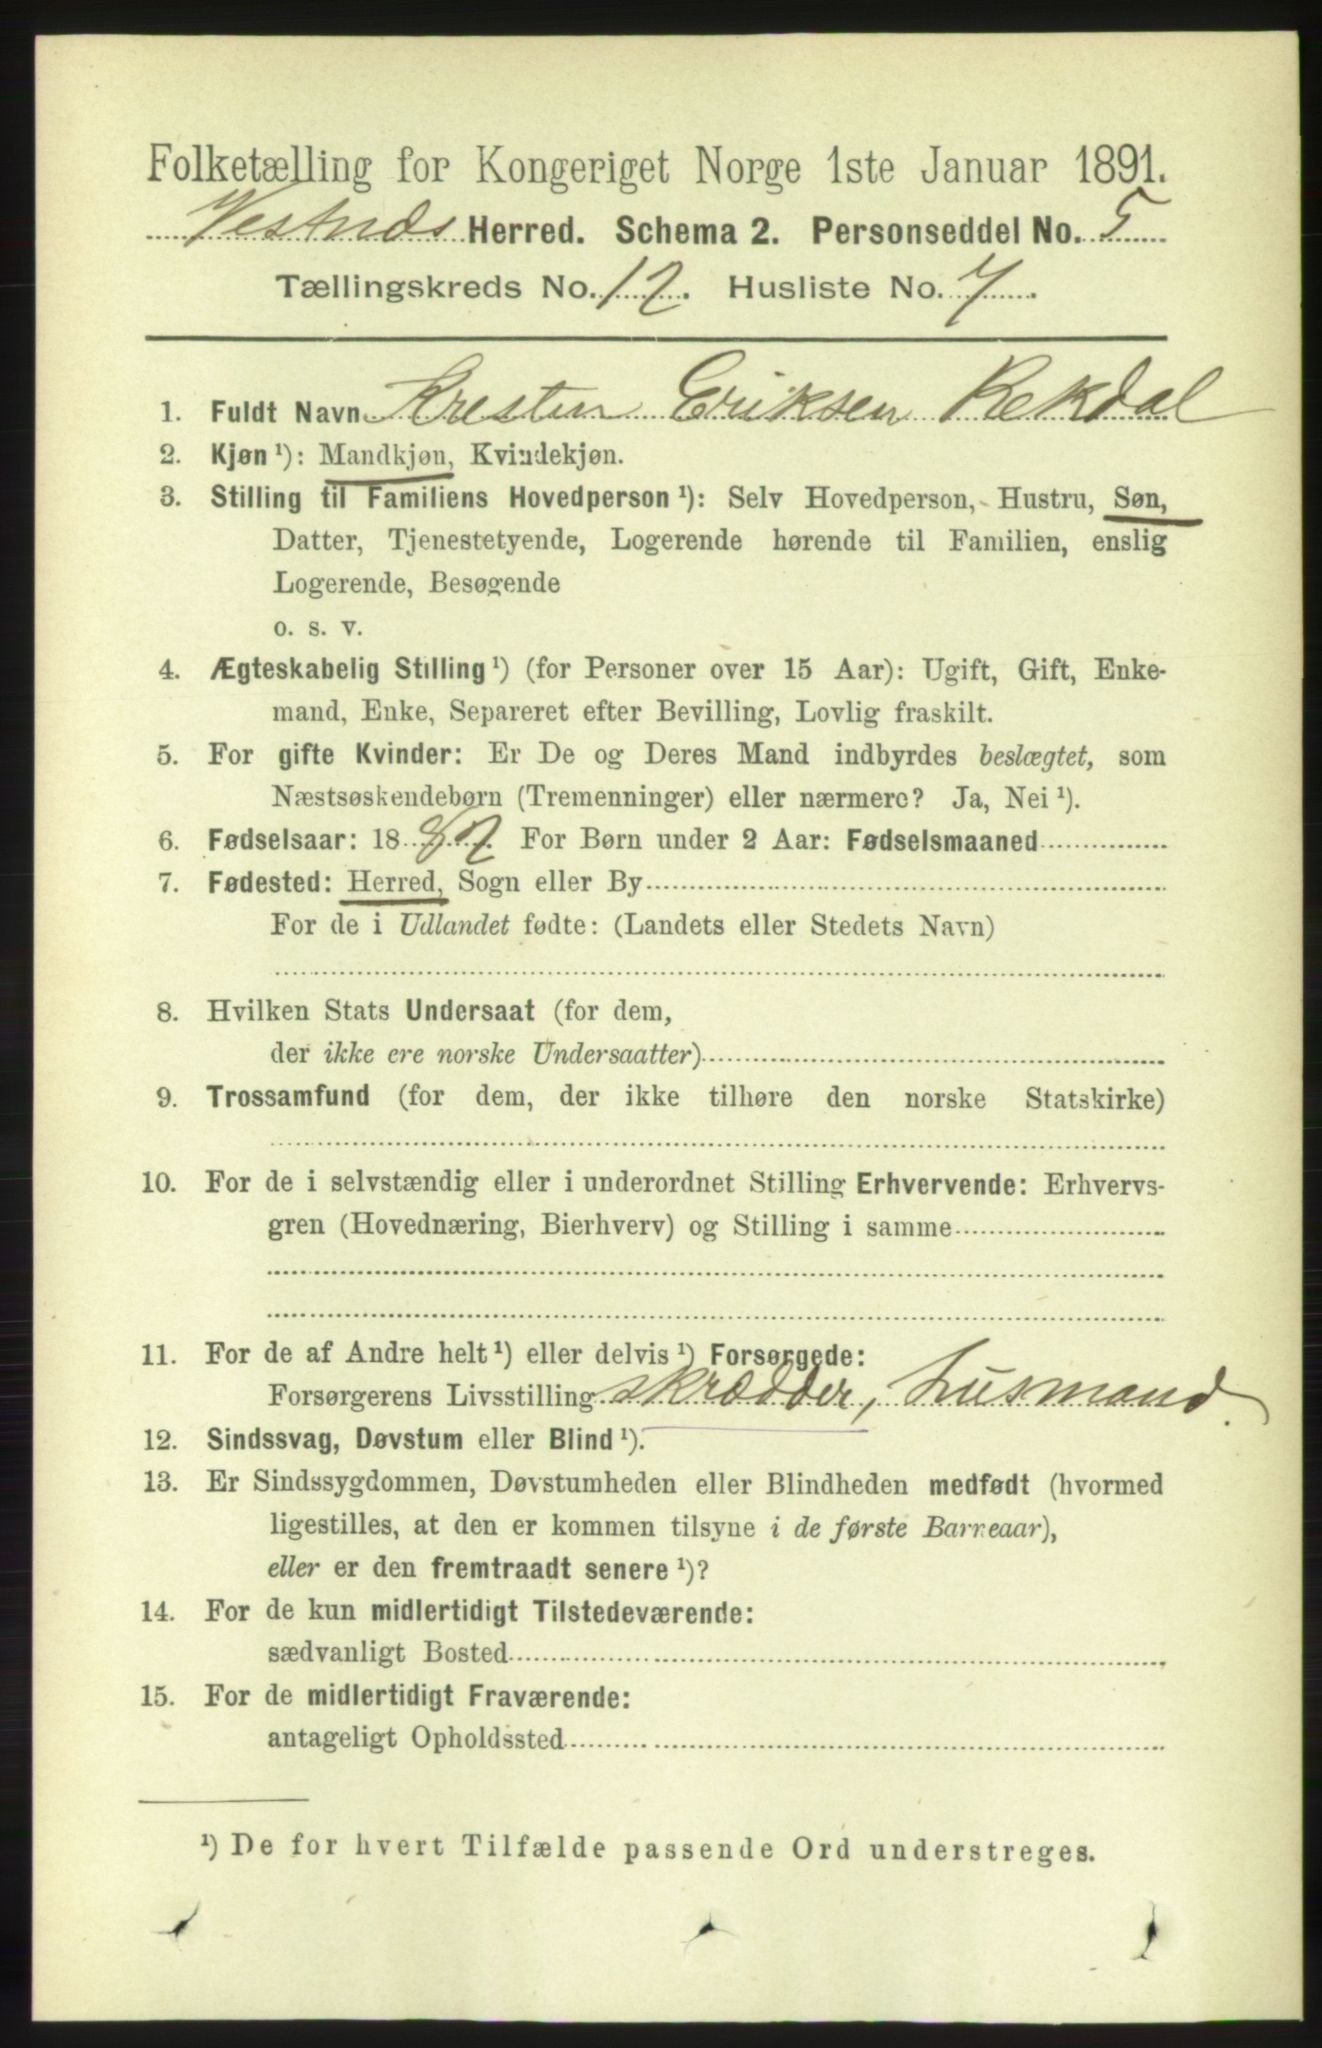 Folketælling for Kongeriget Norge 1ste Januar 1891.
Vestnæs Herred. Schema 2. Personseddel No. 5
Tællingskreds No. 12. Husliste No. 7.
1. Fuldt Navn Kresten Eriksen Rekdal
2. Kjøn ¹): Mandkjøn, Kvindekjøn.
3. Stilling til Familiens Hovedperson ¹): Selv Hovedperson, Hustru, Søn,
Datter, Tjenestetyende, Logerende hørende til Familien, enslig
Logerende, Besøgende
o. s. v.
4. Ægteskabelig Stilling ¹) (for Personer over 15 Aar): Ugift, Gift, Enke-
mand, Enke, Separeret efter Bevilling, Lovlig fraskilt.
5. For gifte Kvinder: Er De og Deres Mand indbyrdes beslægtet, som
Næstsøskendebørn (Tremenninger) eller nærmere? Ja, Nei ¹).
6. Fødselsaar: 1882. For Børn under 2 Aar: Fødselsmaaned
7. Fødested: Herred, Sogn eller By
For de i Udlandet fødte: (Landets eller Stedets Navn)
8. Hvilken Stats Undersaat (for dem,
der ikke ere norske Undersaatter)
9. Trossamfund (for dem, der ikke tilhøre den norske Statskirke)
10. For de i selvstændig eller i underordnet Stilling Erhvervende: Erhvervs-
gren (Hovednæring, Bierhverv) og Stilling i samme
11. For de af Andre helt ¹) eller delvis ¹) Forsørgede:
Forsørgerens Livsstilling skrædder, husmand.
12. Sindssvag, Døvstum eller Blind ¹).
13. Er Sindssygdommen, Døvstumheden eller Blindheden medfødt (hvormed
ligestilles, at den er kommen tilsyne i de første Barneaar),
eller er den fremtraadt senere ¹)?
14. For de kun midlertidigt Tilstedeværende:
sædvanligt Bosted
15. For de midlertidigt Fraværende:
antageligt Opholdssted
¹) De for hvert Tilfælde passende Ord understreges.